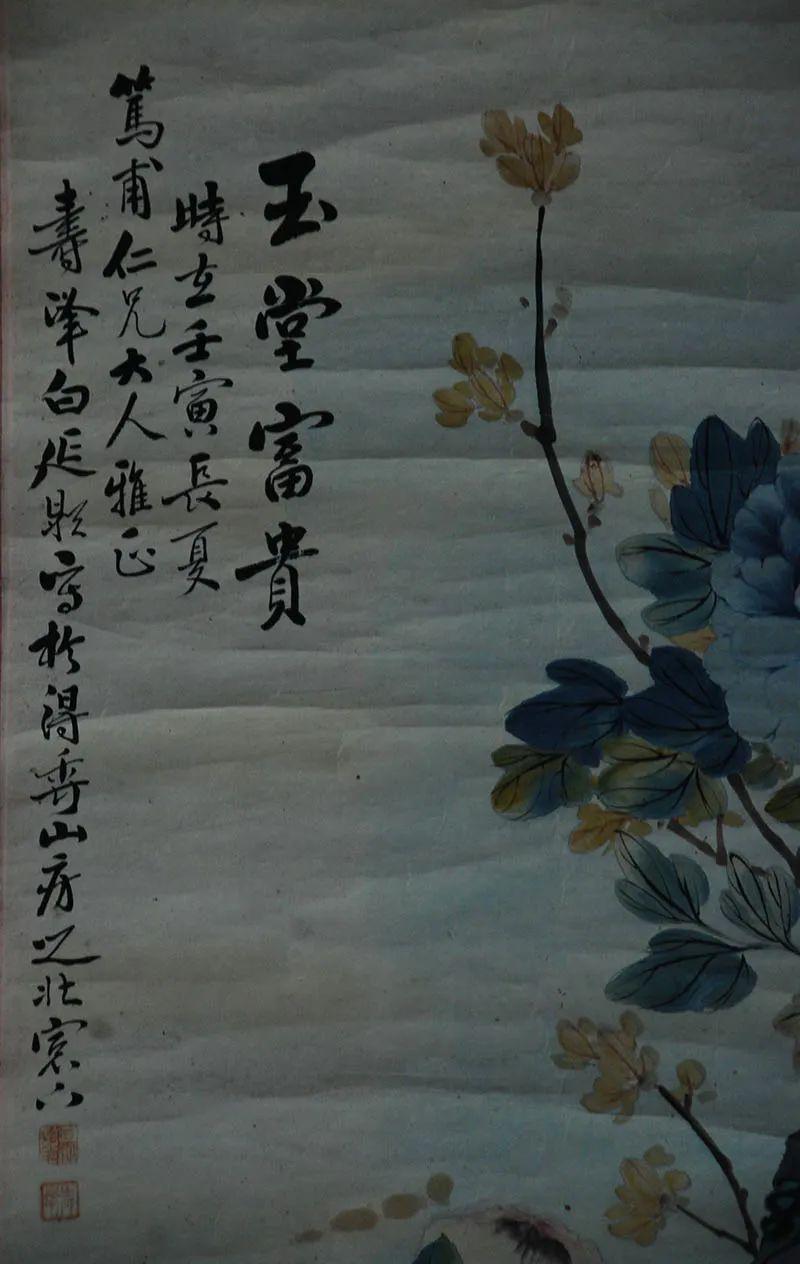 玉堂富貴
時在壬寅長夏
篤甫仁兄大人雅正
壽峰白延熙寫於得秀山房之北窓下